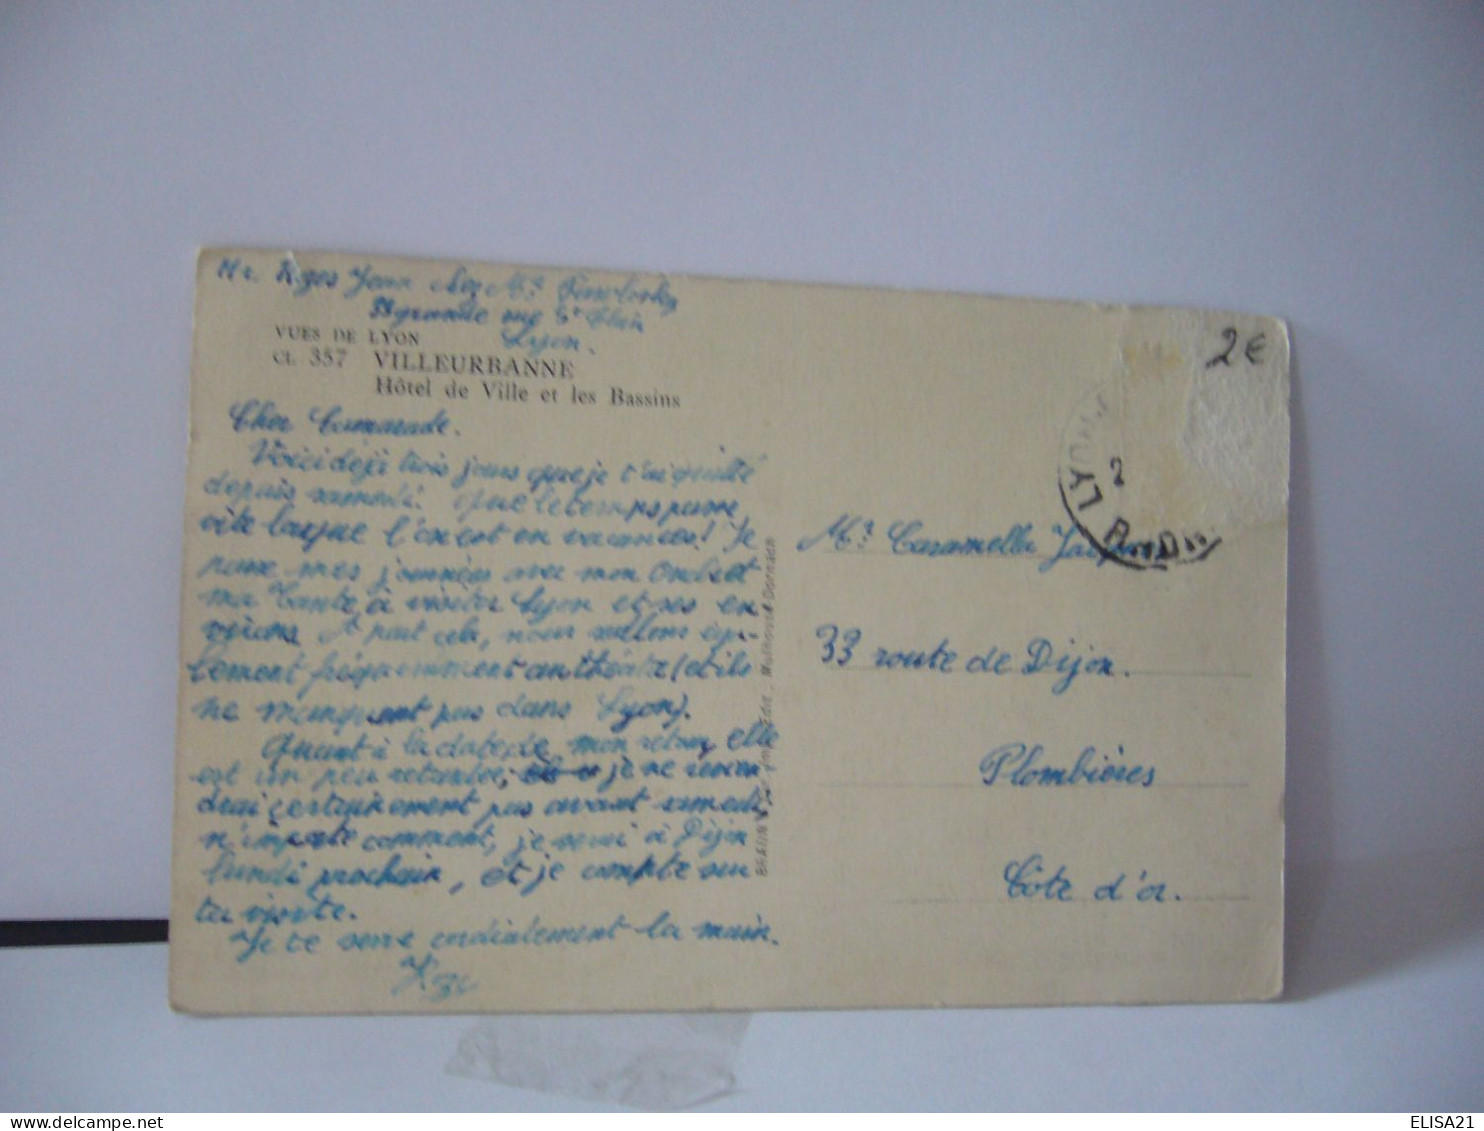 Jean chez Mr
grande rue St Clair
Lyon.
VUES DE LYON
CL 357 VILLEURBANNE
Hôtel de Ville et les Bassins
Cher Camarade.
Voici déjà trois jours que je t'ai quitté
depuis samedi. Que le temps passe
vite lorsque l'on est en vacances! Je
passe mes journées avec mon oncle et
ma tante à visiter Lyon et ses en
virons. A part cela, nous allons éga-
lement fréquemment au théâtre (et ils
ne manquent pas dans Lyon).
Quant à la date de mon retour, elle
est un peu retardée, je ne revien
drai certainement pas avant samedi,
n'importe comment, je serai à Dijon
lundi prochain, et je compte sur
ta visite.
Je te serre cordialement la main.
BRAUN Imp. Edit., Mulhouse-Dornach
2€
LYON
2
RHONE
Mr Caramella Jacques
33 route de Dijon.
Plombières
Côte d'or.
ELISA21